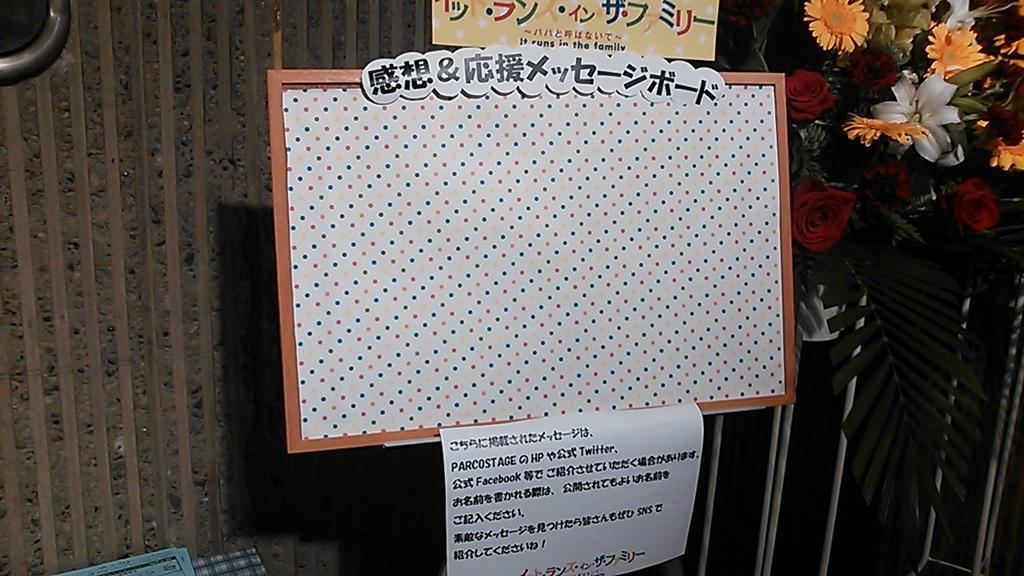 イット・ランズ・イン ザ・ファミリー
～パパと呼ばないで～
It runs in the family
感想＆応援メッセージボード
こちらに掲載されたメッセージは、
PARCOSTAGE の HP や公式 Twitter、
公式 Facebook 等で ご紹介させていただく場合があります。
お名前を書かれる際は、公開されてもよいお名前を
ご記入ください。
素敵なメッセージを見つけたら皆さんもぜひ SNS で
紹介してくださいね！
イット・ランズ・イン ザ・ファミリー